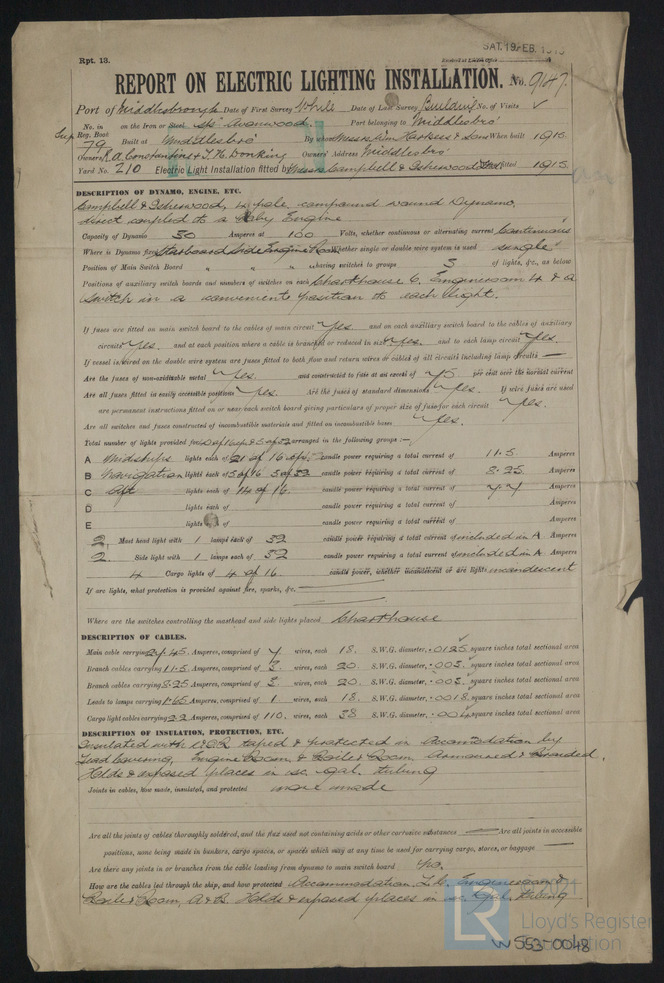 SAT. 19 FEB. 1916
Rpt. 13.
REPORT ON ELECTRIC LIGHTING INSTALLATION. No. 9147
Port of Middlesbrough Date of First Survey Date of Last Survey Building No. of Visits ✓
No. in on the Iron or Steel Port belonging to Middlesbro'
Reg. Book
79 Built at Middlesbro' By whom Messrs Wm Harkess & Sons When built 1915
Owners R.A. Constantine & T.H. Donking Owners' Address Middlesbro'
Yard No. 210 Electric Light Installation fitted by Messrs Campbell & Isherwood Ltd When fitted 1915
DESCRIPTION OF DYNAMO, ENGINE, ETC.
Campbell & Isherwood, 4 pole compound wound Dynamo,
direct coupled to a Engine
Capacity of Dynamo 50 Amperes at 100 Volts, whether continuous or alternating current Continuous
Where is Dynamo fixed Starboard side Engine Room Whether single or double wire system is used single
Position of Main Switch Board " " " having switches to groups 3 of lights, &c., as below
Positions of auxiliary switch boards and numbers of switches on each Charthouse 6, Engineroom 4 & a
switch in a convenient position to each light.
If fuses are fitted on main switch board to the cables of main circuit Yes. and on each auxiliary switch board to the cables of auxiliary
circuits Yes. and at each position where a cable is branched or reduced in size Yes. and to each lamp circuit Yes.
If vessel is wired on the double wire system are fuses fitted to both flow and return wires or cables of all circuits including lamp circuits —
Are the fuses of non-oxidizable metal Yes. and constructed to fuse at an excess of per cent over the normal current
Are all fuses fitted in easily accessible positions Yes. Are the fuses of standard dimensions Yes. If wire fuses are used
are permanent instructions fitted on or near each switch board giving particulars of proper size of fuse for each circuit Yes.
Are all switches and fuses constructed of incombustible materials and fitted on incombustible bases Yes.
Total number of lights provided for arranged in the following groups :—
A Midships lights each of 21 of 16 candle power requiring a total current of 11.5 Amperes
B Navigation lights each of 5 of 16 5 of 32 candle power requiring a total current of 8.25 Amperes
C Aft lights each of 14 of 16 candle power requiring a total current of 7.7 Amperes
D lights each of candle power requiring a total current of Amperes
E lights each of candle power requiring a total current of Amperes
2 Mast head light with 1 lamps each of 32 candle power requiring a total current of included in A Amperes
2 Side light with 1 lamps each of 32 candle power requiring a total current of included in A Amperes
4 Cargo lights of 4 of 16 candle power, whether incandescent or arc lights incandescent
If arc lights, what protection is provided against fire, sparks, &c.
Where are the switches controlling the masthead and side lights placed Charthouse
DESCRIPTION OF CABLES.
Main cable carrying 27.45 Amperes, comprised of 7 wires, each 18 S.W.G. diameter, .0125 square inches total sectional area
Branch cables carrying 11.5 Amperes, comprised of 3 wires, each 20 S.W.G. diameter, .003 square inches total sectional area
Branch cables carrying 8.25 Amperes, comprised of 3 wires, each 20 S.W.G. diameter, .003 square inches total sectional area
Leads to lamps carrying 1.65 Amperes, comprised of 1 wires, each 18 S.W.G. diameter, .0018 square inches total sectional area
Cargo light cables carrying 2.2 Amperes, comprised of 110 wires, each 38 S.W.G. diameter, square inches total sectional area
DESCRIPTION OF INSULATION, PROTECTION, ETC.
Insulated with V.I.R. taped & protected in Accomodation by
Lead covering, Engine Room & Boiler Room armoured & Braided,
Holds & exposed places in sc. gal. tubing
Joints in cables, how made, insulated, and protected none made
Are all the joints of cables thoroughly soldered, and the flux used not containing acids or other corrosive substances — Are all joints in accessible
positions, none being made in bunkers, cargo spaces, or spaces which may at any time be used for carrying cargo, stores, or baggage —
Are there any joints in or branches from the cable leading from dynamo to main switch board No.
How are the cables led through the ship, and how protected Accommodation L.C. Engineroom &
Boiler Room, A & B. Holds & exposed places in sc. Gal. tubing
© 2021
LR
Lloyd's Register
Foundation
W553-0048